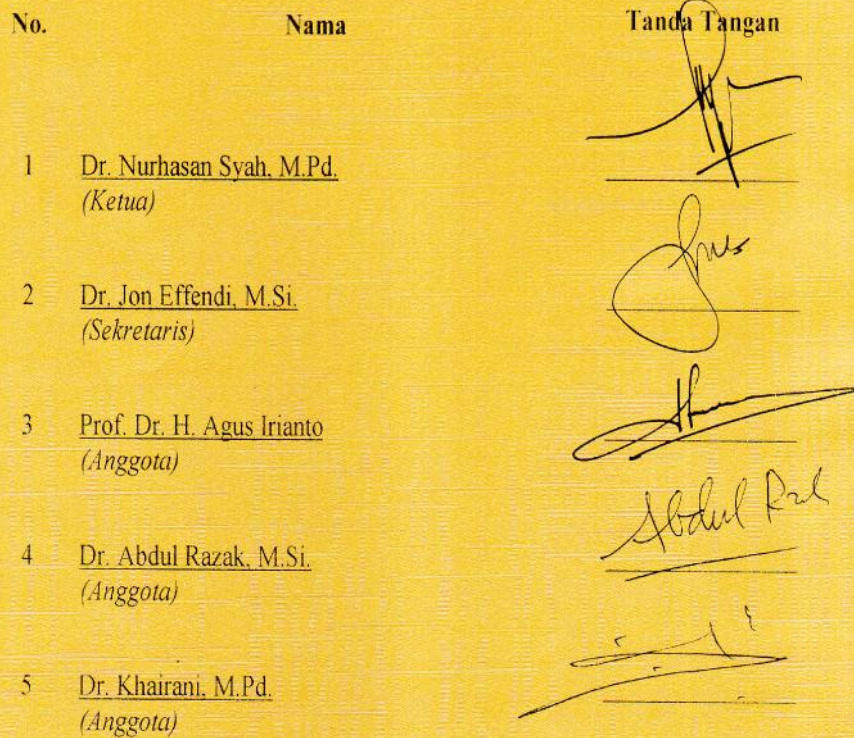 No. Nama Tanda Tangan
1 Dr. Nurhasan Syah, M.Pd.
(Ketua)
2 Dr. Jon Effendi, M.Si.
(Sekretaris)
3 Prof. Dr. H. Agus Irianto
(Anggota)
Abdul
4 Dr. Abdul Razak, M.Si.
(Anggota)
5 Dr. Khairani, M.Pd.
(Anggota)